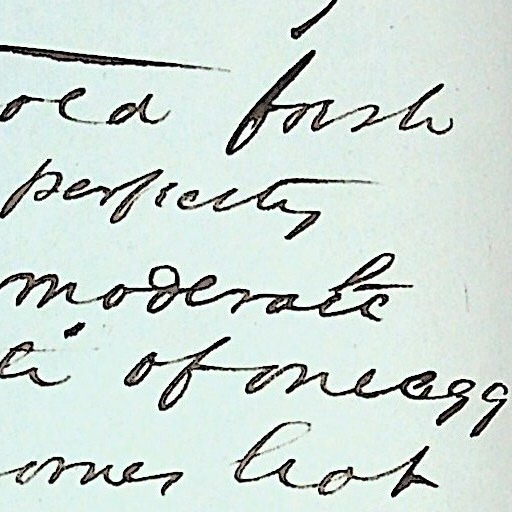 old fresh
perfectly
moderate
of one egg
omes hot